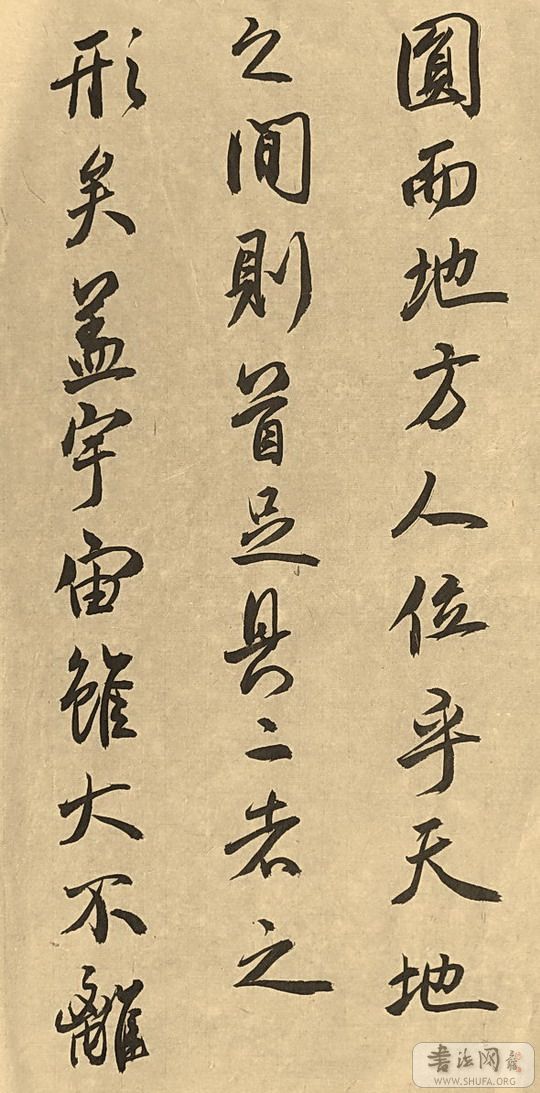 圓而地方人位乎天地
之間則首足具二者之
形矣盖宇宙雖大不離
書法网
WWW.SHUFA.ORG